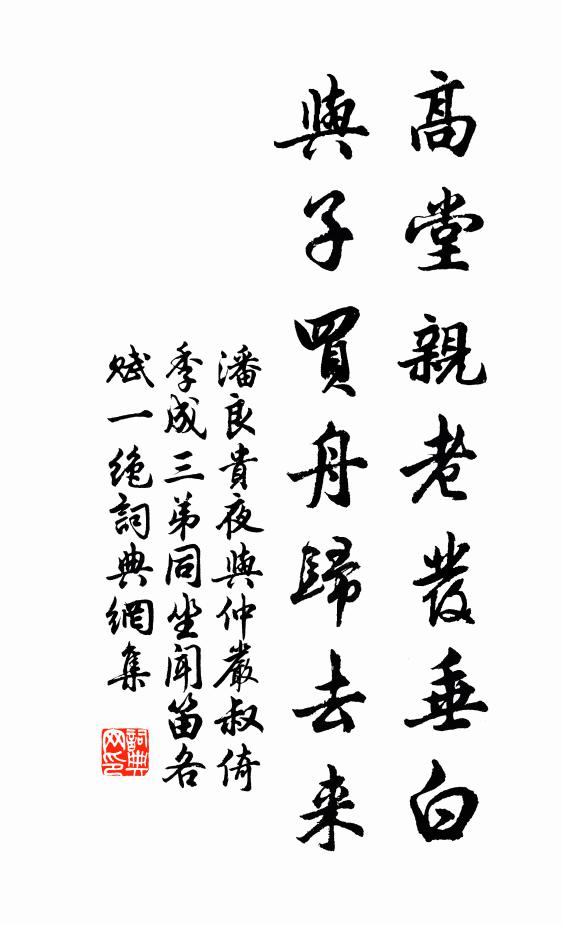 高堂親老發垂白
與子買舟歸去来
潘良貴夜與仲嚴叔倚
季成三弟同坐聞笛各
賦一絶詞典網集
詞典
网印